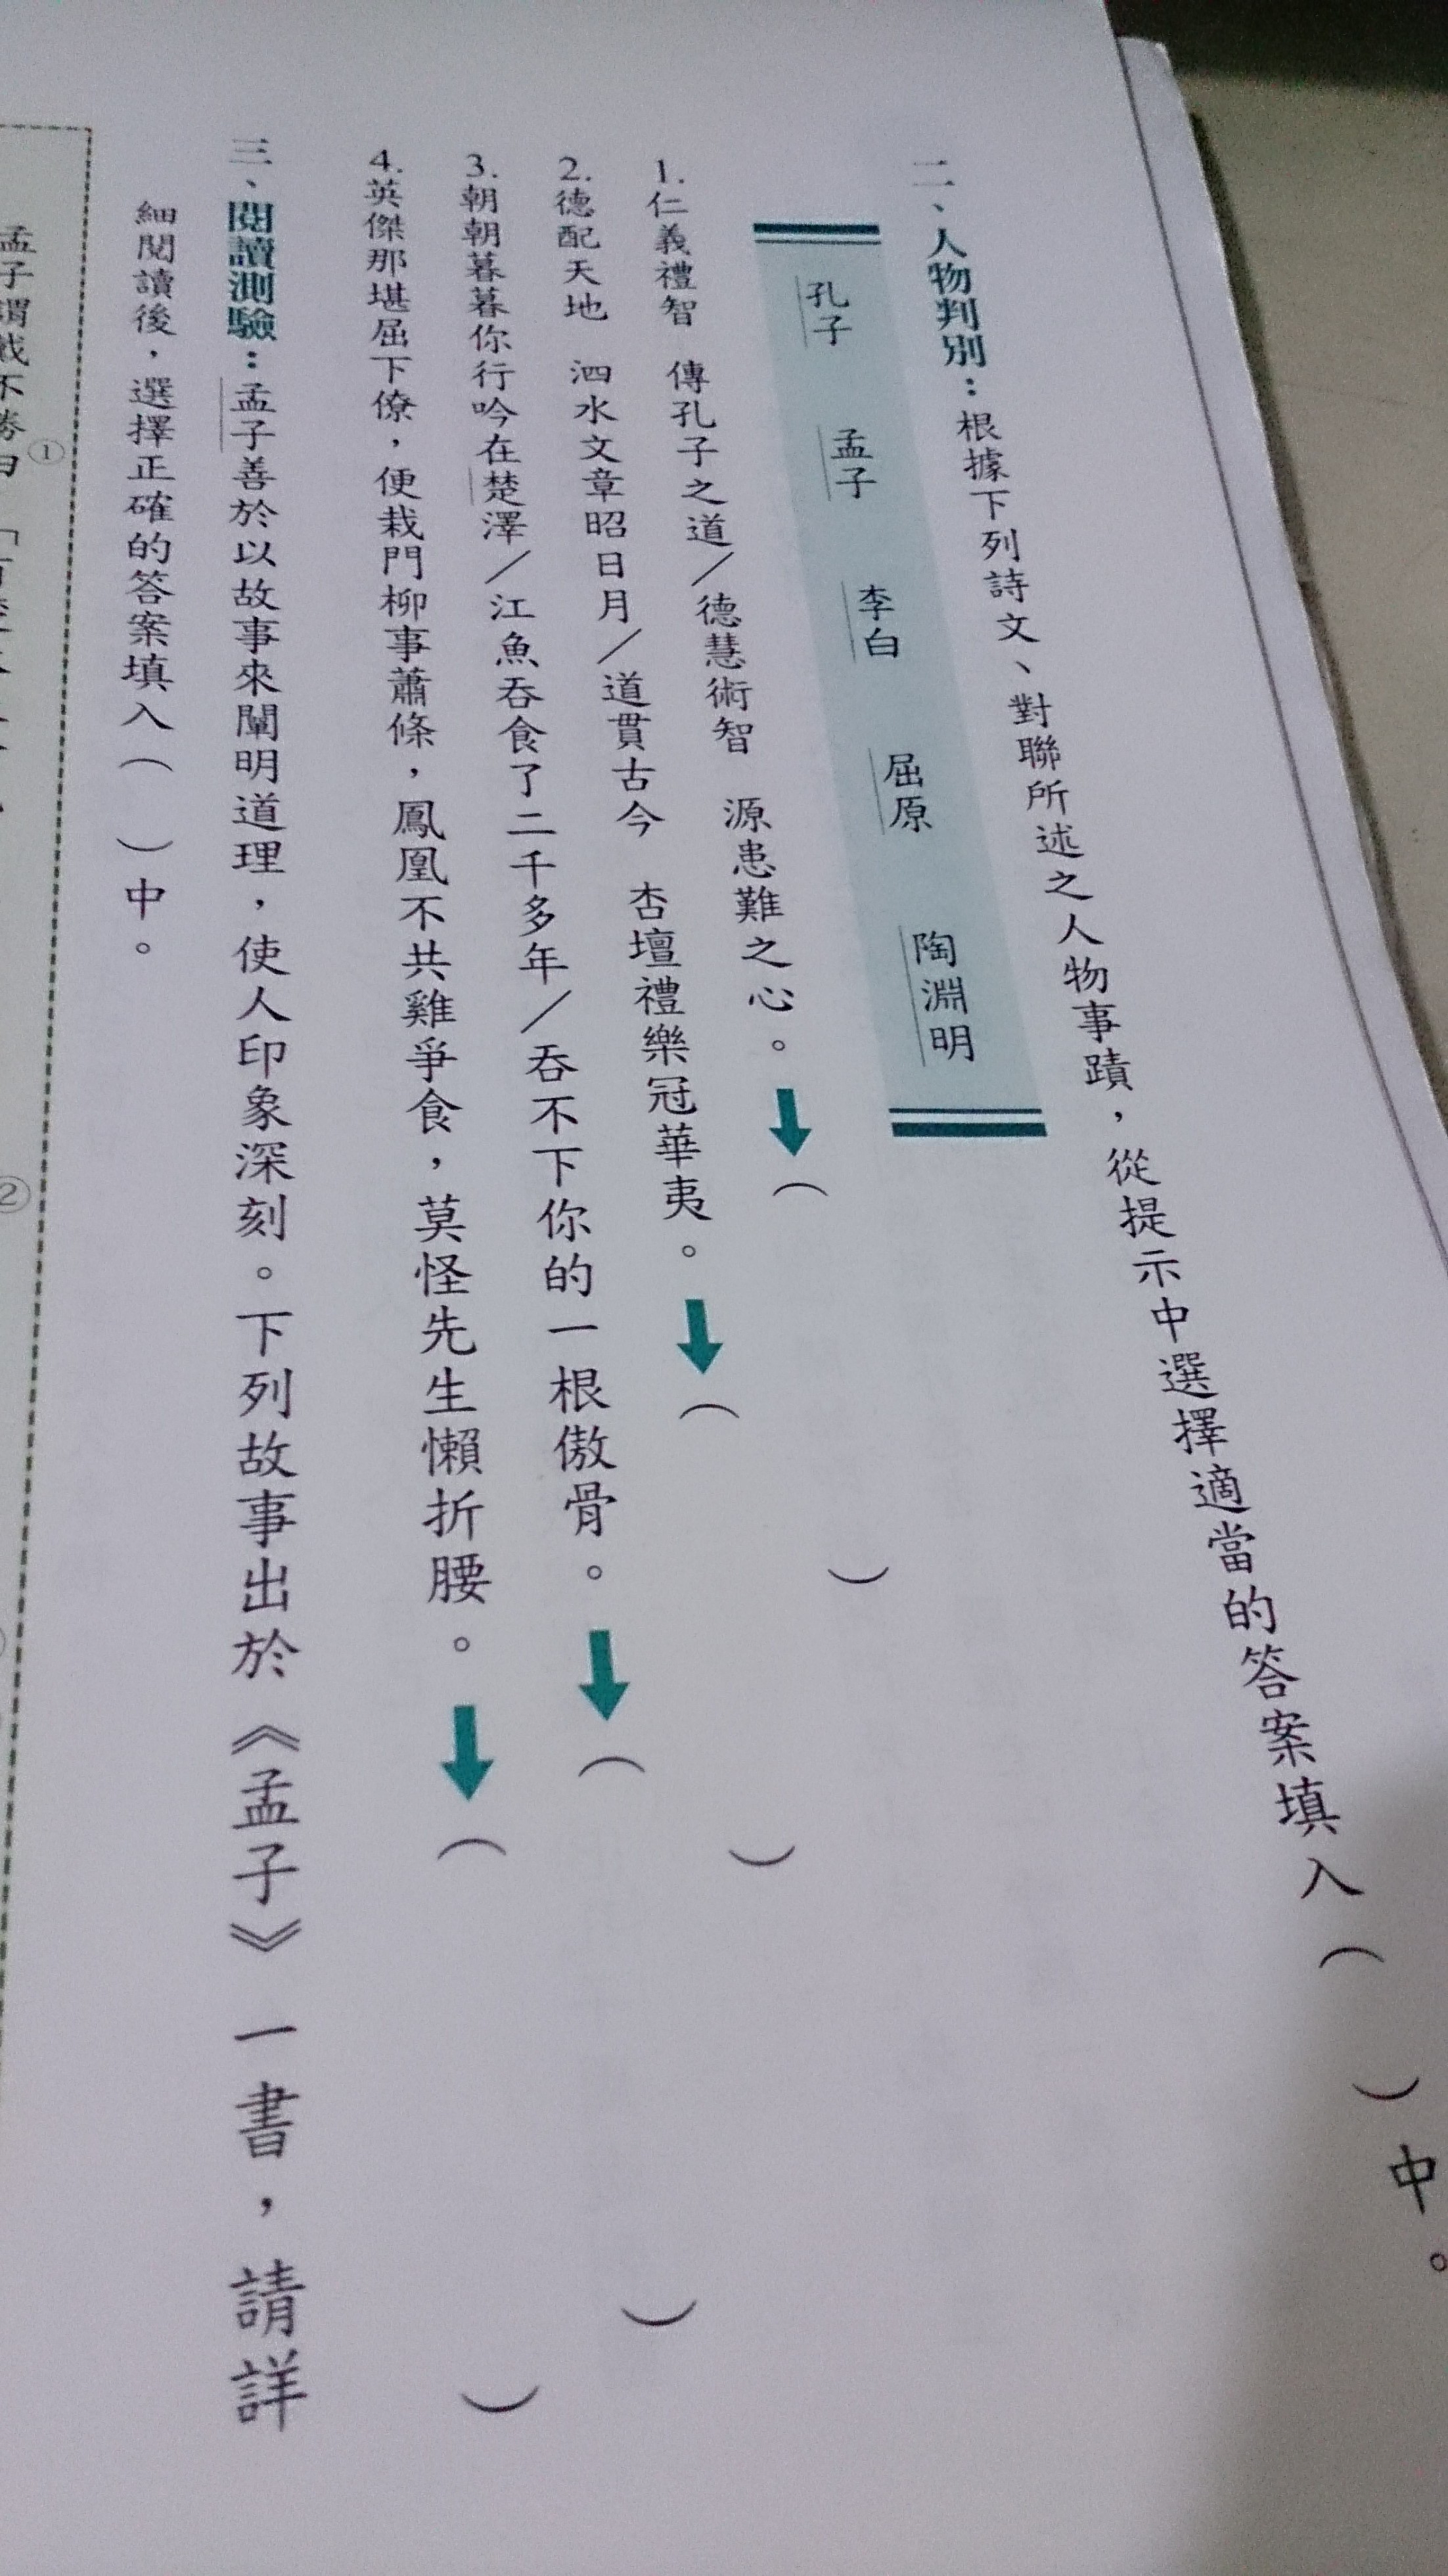 二、人物判別：根據下列詩文、對聯所述之人物事蹟，從提示中選擇適當的答案填入（　）中。
孔子　孟子　李白　屈原　陶淵明
1.仁義禮智　傳孔子之道／德慧術智　源患難之心。➡（　）
2.德配天地　泗水文章昭日月／道貫古今　杏壇禮樂冠華夷。➡（　）
3.朝朝暮暮你行吟在楚澤／江魚吞食了二千多年／吞不下你的一根傲骨。➡（　）
4.英傑那堪屈下僚，便栽門柳事蕭條，鳳凰不共雞爭食，莫怪先生懶折腰。➡（　）
三、閱讀測驗：孟子善於以故事來闡明道理，使人印象深刻。下列故事出於《孟子》一書，請詳
細閱讀後，選擇正確的答案填入（　）中。
孟子謂戴不勝曰①
②